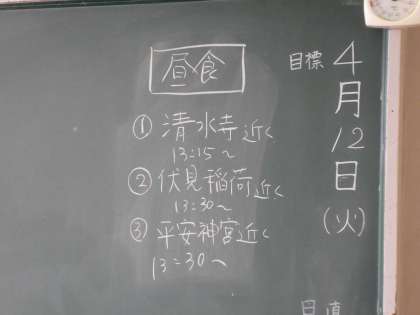 目標
4月12日(火)
昼食
① 清水寺近く
13:15〜
② 伏見稲荷近く
13:30〜
③ 平安神宮近く
13:30〜
日直